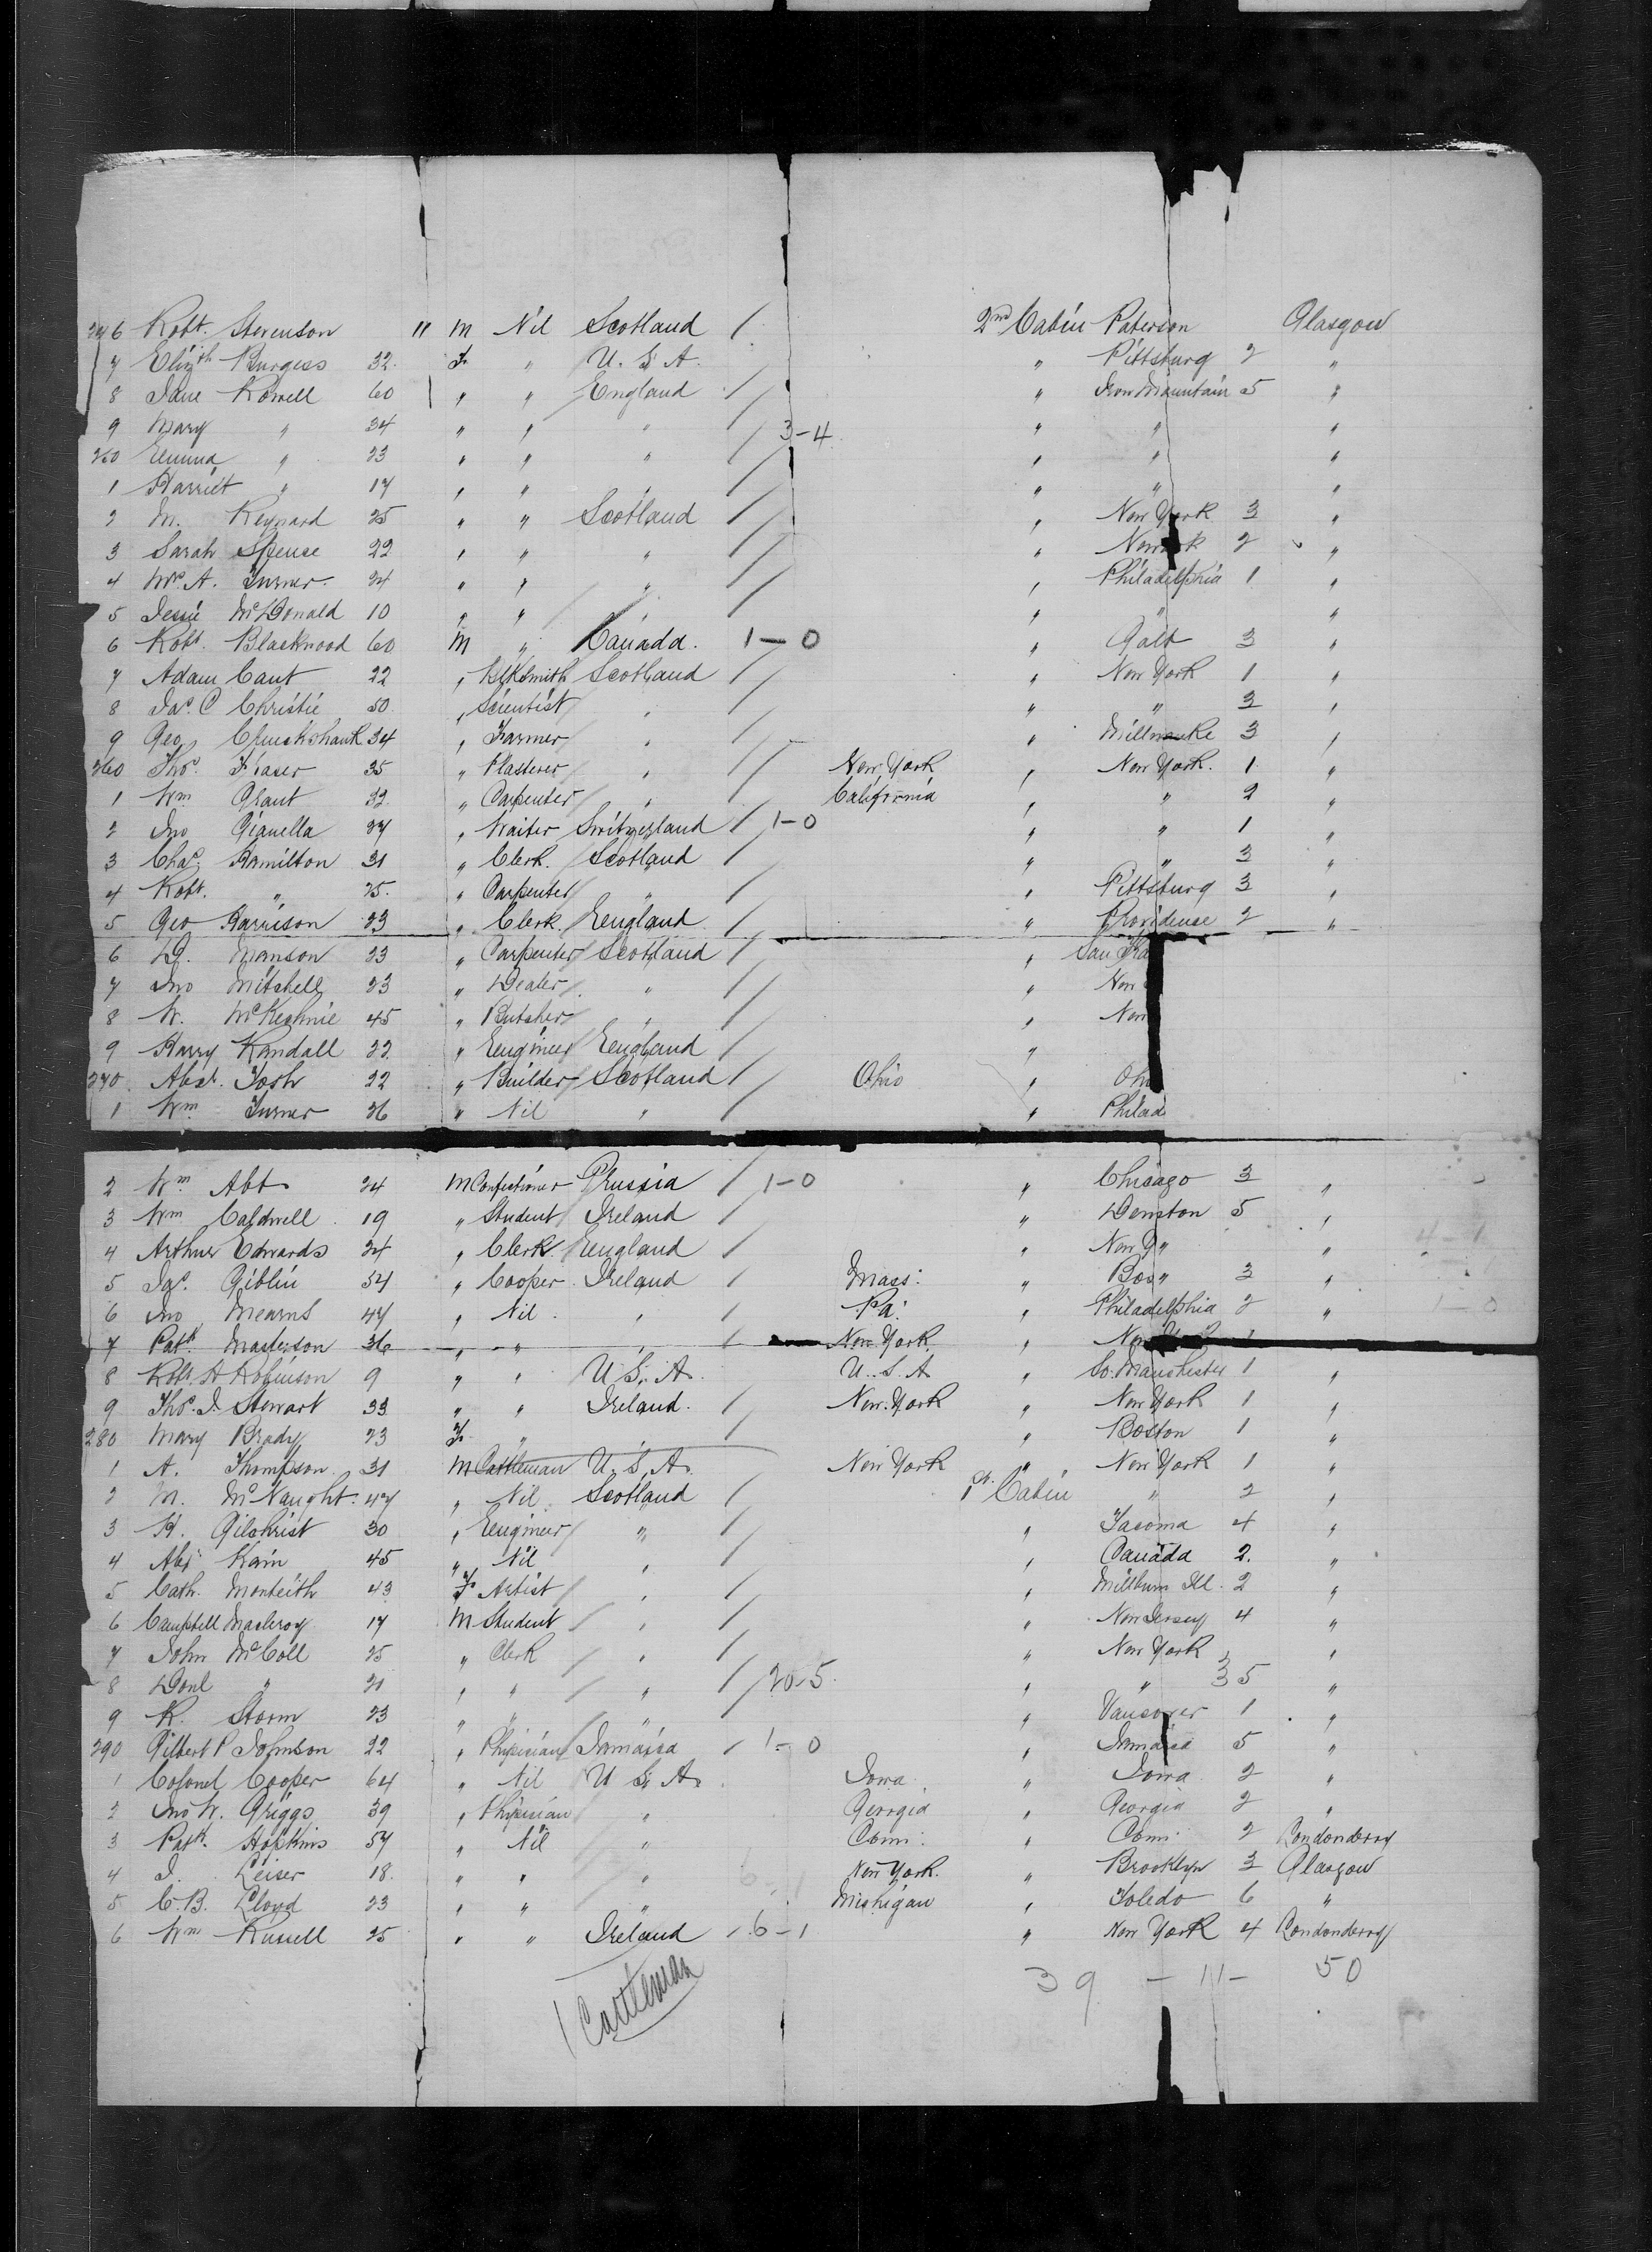 246 Robt. Stevenson 11 M Nil Scotland / 2nd Cabin Paterson Glasgow
7 Elizth Burgess 32 F " U.S.A. " Pittsburg 2 "
8 Jane Rowell 60 " " England / " Iron Mountain 5 "
9 Mary " 34 " " " / 3-4 " " "
250 Emma " 23 " " " / " " "
1 Harriet " 17 " " " / " " "
2 M. Reynard 25 " " Scotland / " New York 3 "
3 Sarah Spence 22 " " " / " Newark 2 "
4 Mrs A. Turner 24 " " " / " Philadelphia 1 "
5 Jessie McDonald 10 " " " / " " "
6 Robt. Blackwood 60 M " Canada. 1-0 " Galt 3 "
7 Adam Cant 22 " Blksmith Scotland / " New York 1 "
8 Jas. C Christie 50 " Scientist " / " " 3 "
9 Geo Cruickshank 34 " Farmer " / " Millwauke 3 "
260 Thos. Fraser 35 " Plasterer " / New York " New York. 1 "
1 Wm Grant 32 " Carpenter " / California " " 2 "
2 Jno Gianella 27 " Waiter Switzerland / 1-0 " " 1 "
3 Chas. Hamilton 31 " Clerk. Scotland / " " 3 "
4 Robt. " 25. " Carpenter " / " Pittsburg 3 "
5 Geo Harrison 23 " Clerk England / " Providence 2 "
6 D. Manson 23 " Carpenter Scotland / " San Fra
7 Jno Mitchell 23 " Dealer " / " New
8 W. McKechnie 45 " Butcher " / " New
9 Harry Randall 22 " Engineer England / "
270 Alexr. Tosh 22 " Builder Scotland / Ohio " Ohi
1 Wm Turner 36 " Nil " / " Philad
2 Wm Abt 24 M Confectioner Prussia / 1-0 " Chicago 3 "
3 Wm Caldwell 19 " Student Ireland / " Denston 5 "
4 Arthur Edwards 24 " Clerk England / " New " " 4-1
5 Jas. Giblin 54 " Cooper Ireland / Mass: " Bos " 3 "
6 Jno Mearns 47 " Nil " / Pa: " Philadelphia 2 " 1-0
7 Patk. Masterson 36 " " " / New York " New 1
8 Robt. H Robinson 9 " " U.S.A. U.S.A " So. Manchester 1 "
9 Thos. J. Stewart 33 " " Ireland. / New York " New York 1 "
280 Mary Brady 23 F " " / " Boston 1 "
1 A. Thompson 31 M Cattleman U.S.A. New York " New York 1 "
2 M. McNaught 47 " Nil Scotland / 1st Cabin " 2 "
3 H. Gilchrist 30 " Engineer " / " Tacoma 4 "
4 Alex Kain 45 " Nil " / " Canada 2. "
5 Cath. Monteith 43 F Artist " / " Millburn Ill. 2 "
6 Campbell Macleroy 17 M Student " / " New Jersey 4 "
7 John McColl 25 " Clerk " / " New York "
8 Donl " 21 " " " / 20-5 " " 3 5 "
9 R. Storm 23 " " " " Vancover 1 "
290 Gilbert P Johnson 22 " Phisician Jamaica / 1-0 " Jamaica 5 "
1 Colonel Cooper 64 " Nil U S. A. Iowa " Iowa 2 "
2 Jno W. Griggs 39 " Phisician " Georgia " Georgia 2 "
3 Patk. Hopkins 57 " Nil " Conn: " Conn: 2 Londonderry
4 J. Leiser 18. " " " 6-1 New York. " Brooklyn 3 Glasgow
5 C.B. Lloyd 23 " " " Michigan " Toledo 6 "
6 Wm Russell 25 " " Ireland / 6-1 " New York 4 Londonderry
39 - 11 - 50
1 Cattleman